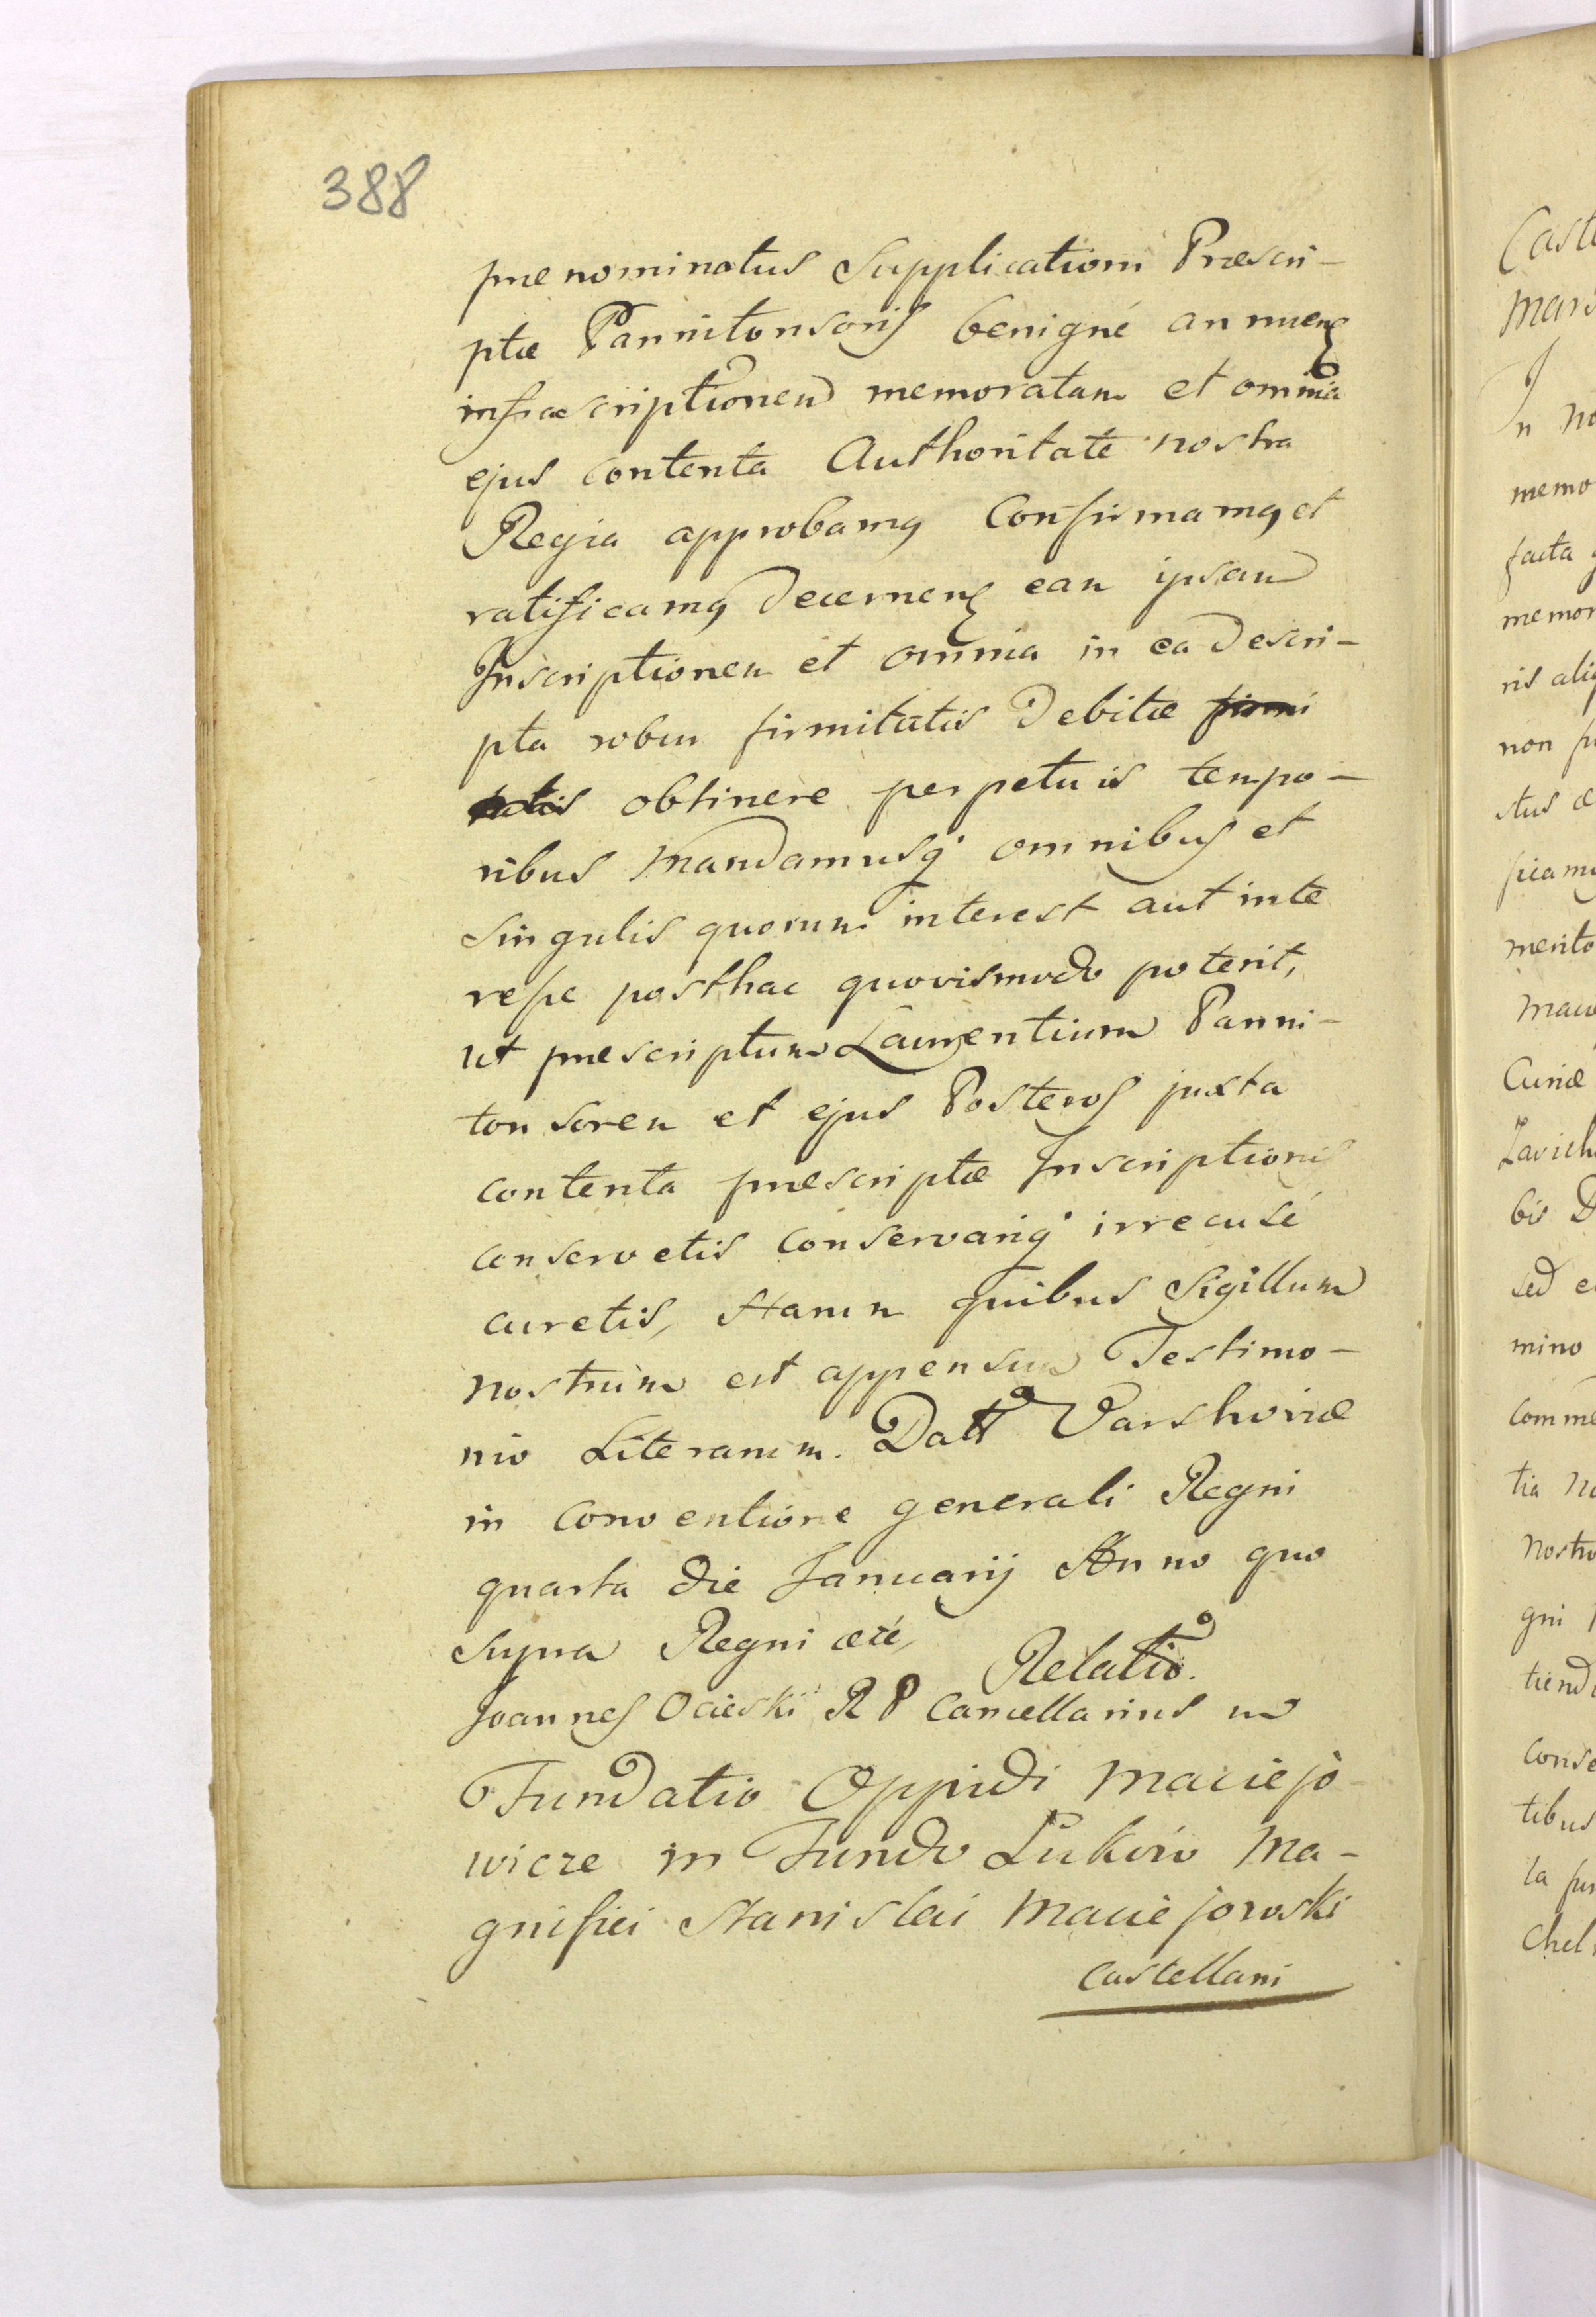 388
prenominatus Supplicationi Præscri-
ptæ Pannitonsoris benigné annuens
infrascriptionem memoratam et omnia
ejus contenta Authoritate nostra
Regia approbamq Confirmamq et
ratificamq Decernens eam ipsam
Inscriptionem et omnia in ea Descri-
pta robur firmitatis Debitæ firmi
tatis obtinere perpetuis tempo-
ribus Mandamusq omnibus et
singulis quorum interest aut inte
resse posthac quovismodo poterit,
ut præscriptum Laurentium Panni-
tonsorem et ejus Posteros juxta
contenta præscriptæ Inscriptionis
conservetis conservariq irrecusé
curetis, Harum quibus Sigillum
nostrum est appensum Testimo-
nio Literarum. Datt Varshoviæ
in Conventione generali Regni
quarta Die Januarij Anno quo
supra Regni
Relatio.
Joannes Ocieski R P Cancellarius
Fundatio Oppidi Maciejo
wicze in Fundo Lukow Ma-
gnifici Stanislai Maciejowski
Castellani
Caste
In no
memo
facta
memor
ris
non
stus
merito
Curiæ
bis D
sed
mino
tia
nostro
gni
tiend
conse
tibus
ta
Chel